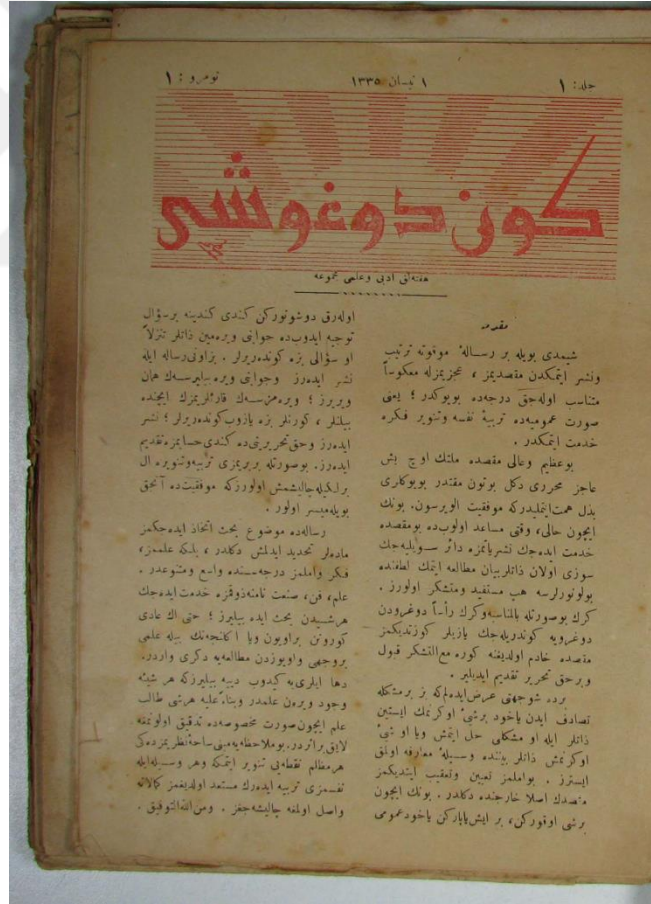 جلد: ١
١ نیسان ١٣٣٥
نومرو : ١
كون دوغوشی
هفته‌لق ادبی وعلمی مجموعه
مقدمه
شیمدی بویله بر رسالهٔ موقوته ترتیب
ونشر ایتمكدن مقصدیمز ، عجزیمزله معكوساً
متناسب اوله‌جق درجه‌ده بویوكدر ؛ یعنی
صورت عمومیه‌ده تربیهٔ نفسه وتنویر فكره
خدمت ایتمكدر .
بوعظیم وعالی مقصده ملتك اوچ بش
عاجز محرری دكل بوتون مقتدر بویوكلری
بذل همت ایتملیدركه موفقیت الویرسون. بونك
ایچون حالی، وقتی مساعد اولوب‌ده بومقصده
خدمت ایده‌جك نشریاتمزه دائر سویلیه‌جك
سوزی اولان ذاتلر بیان مطالعه ایتمك لطفنده
بولونورلرسه هپ مستفید ومتشكر اولورز .
كرك بوصورتله بالمناسبه وكرك رأساً دوغرودن
دوغرویه كوندریله‌جك یازیلر كوزتدیكمز
مقصده خادم اولدیغنه كوره مع‌التشكر قبول
وبر حق تحریر تقدیم ایدیلیر .
برده شو جهتی عرض ایده‌لم كه بر مشكله
تصادف ایدن یاخود برشیٔ اوكرنمك ایستین
ذاتلر ایله او مشكلی حل ایتمش ویا او شیٔ
اوكرنمش ذاتلر بیننده وسیلهٔ معارفه اولمق
ایسترز . بواملمز تعیین وتعقیب ایتدیكمز
مقصدك اصلا خارجنده دكلدر . بونك ایچون
برشی اوقوركن، بر ایش یاپاركن یاخود عمومی
اوله‌رق دوشونوركن كندی كندینه برسؤال
توجیه ایدوب‌ده جوابنی ویره‌مین ذاتلر تنزلاً
او سؤالی بزه كوندریرلر . بز اونی رساله ایله
نشر ایده‌رز وجوابنی ویره بیلیرسه‌ك همان
ویریرز ؛ ویره‌مزسه‌ك قارئلریمزك ایچنده
بیلنلر ، كورنلر بزه یازوب كوندریرلر ؛ نشر
ایده‌رز وحق تحریرینی‌ده كندی حسابمزه تقدیم
ایده‌رز. بوصورتله بربریمزی تربیه وتنویره ال
برلكیله چالیشمش اولورزكه موفقیت‌ده آنجق
بویله میسر اولور .
رساله‌ده موضوع بحث اتخاذ ایده‌جكمز
ماده‌لر تحدید ایدلمش دكلدر ، بلكه علممز،
فكر واملمز درجه‌سنده واسع ومتنوعدر .
علم، فن، صنعت نامنه‌ذوقمزه خدمت ایده‌جك
هرشیدن بحث ایده بیلیرز ؛ حتی اك عادی
كورونن براویون ویا اكلنجه‌نك بیله علمی
بروجهی واویوزدن مطالعه‌یه دكری واردر.
دها ایلری‌یه كیدوب دییه بیلیرزكه هر شیئه
وجود ویره‌ن علمدر وبناءً علیه هرشی طالب
علم ایچون صورت مخصوصه‌ده تدقیق اولونمغه
لایق براثردر. بوملاحظه‌یه مبنی ساحهٔ نظریمزده‌كی
هرمظلم نقطه‌یی تنویر ایتمكه وهر وسیله‌ایله
نفسمزی تربیه ایده‌رك مستعد اولدیغمز كمالاته
واصل اولمغه چالیشه‌جغز . ومن‌الله‌التوفیق .